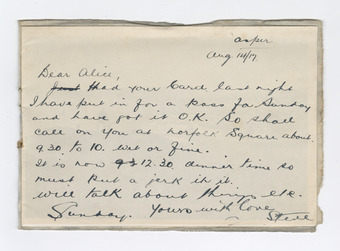 as per
Aug 14/17
Dear Alice,
Just had your Card last night
I have put in for a pass for Sunday
and have got it O.K. So shall
call on you at Norfolk Square about
9.30 to 10. wet or fine.
It is now 12.30. dinner time so
must put a jerk in it.
will talk about things etc.
Sunday. Yours with Love
Steve